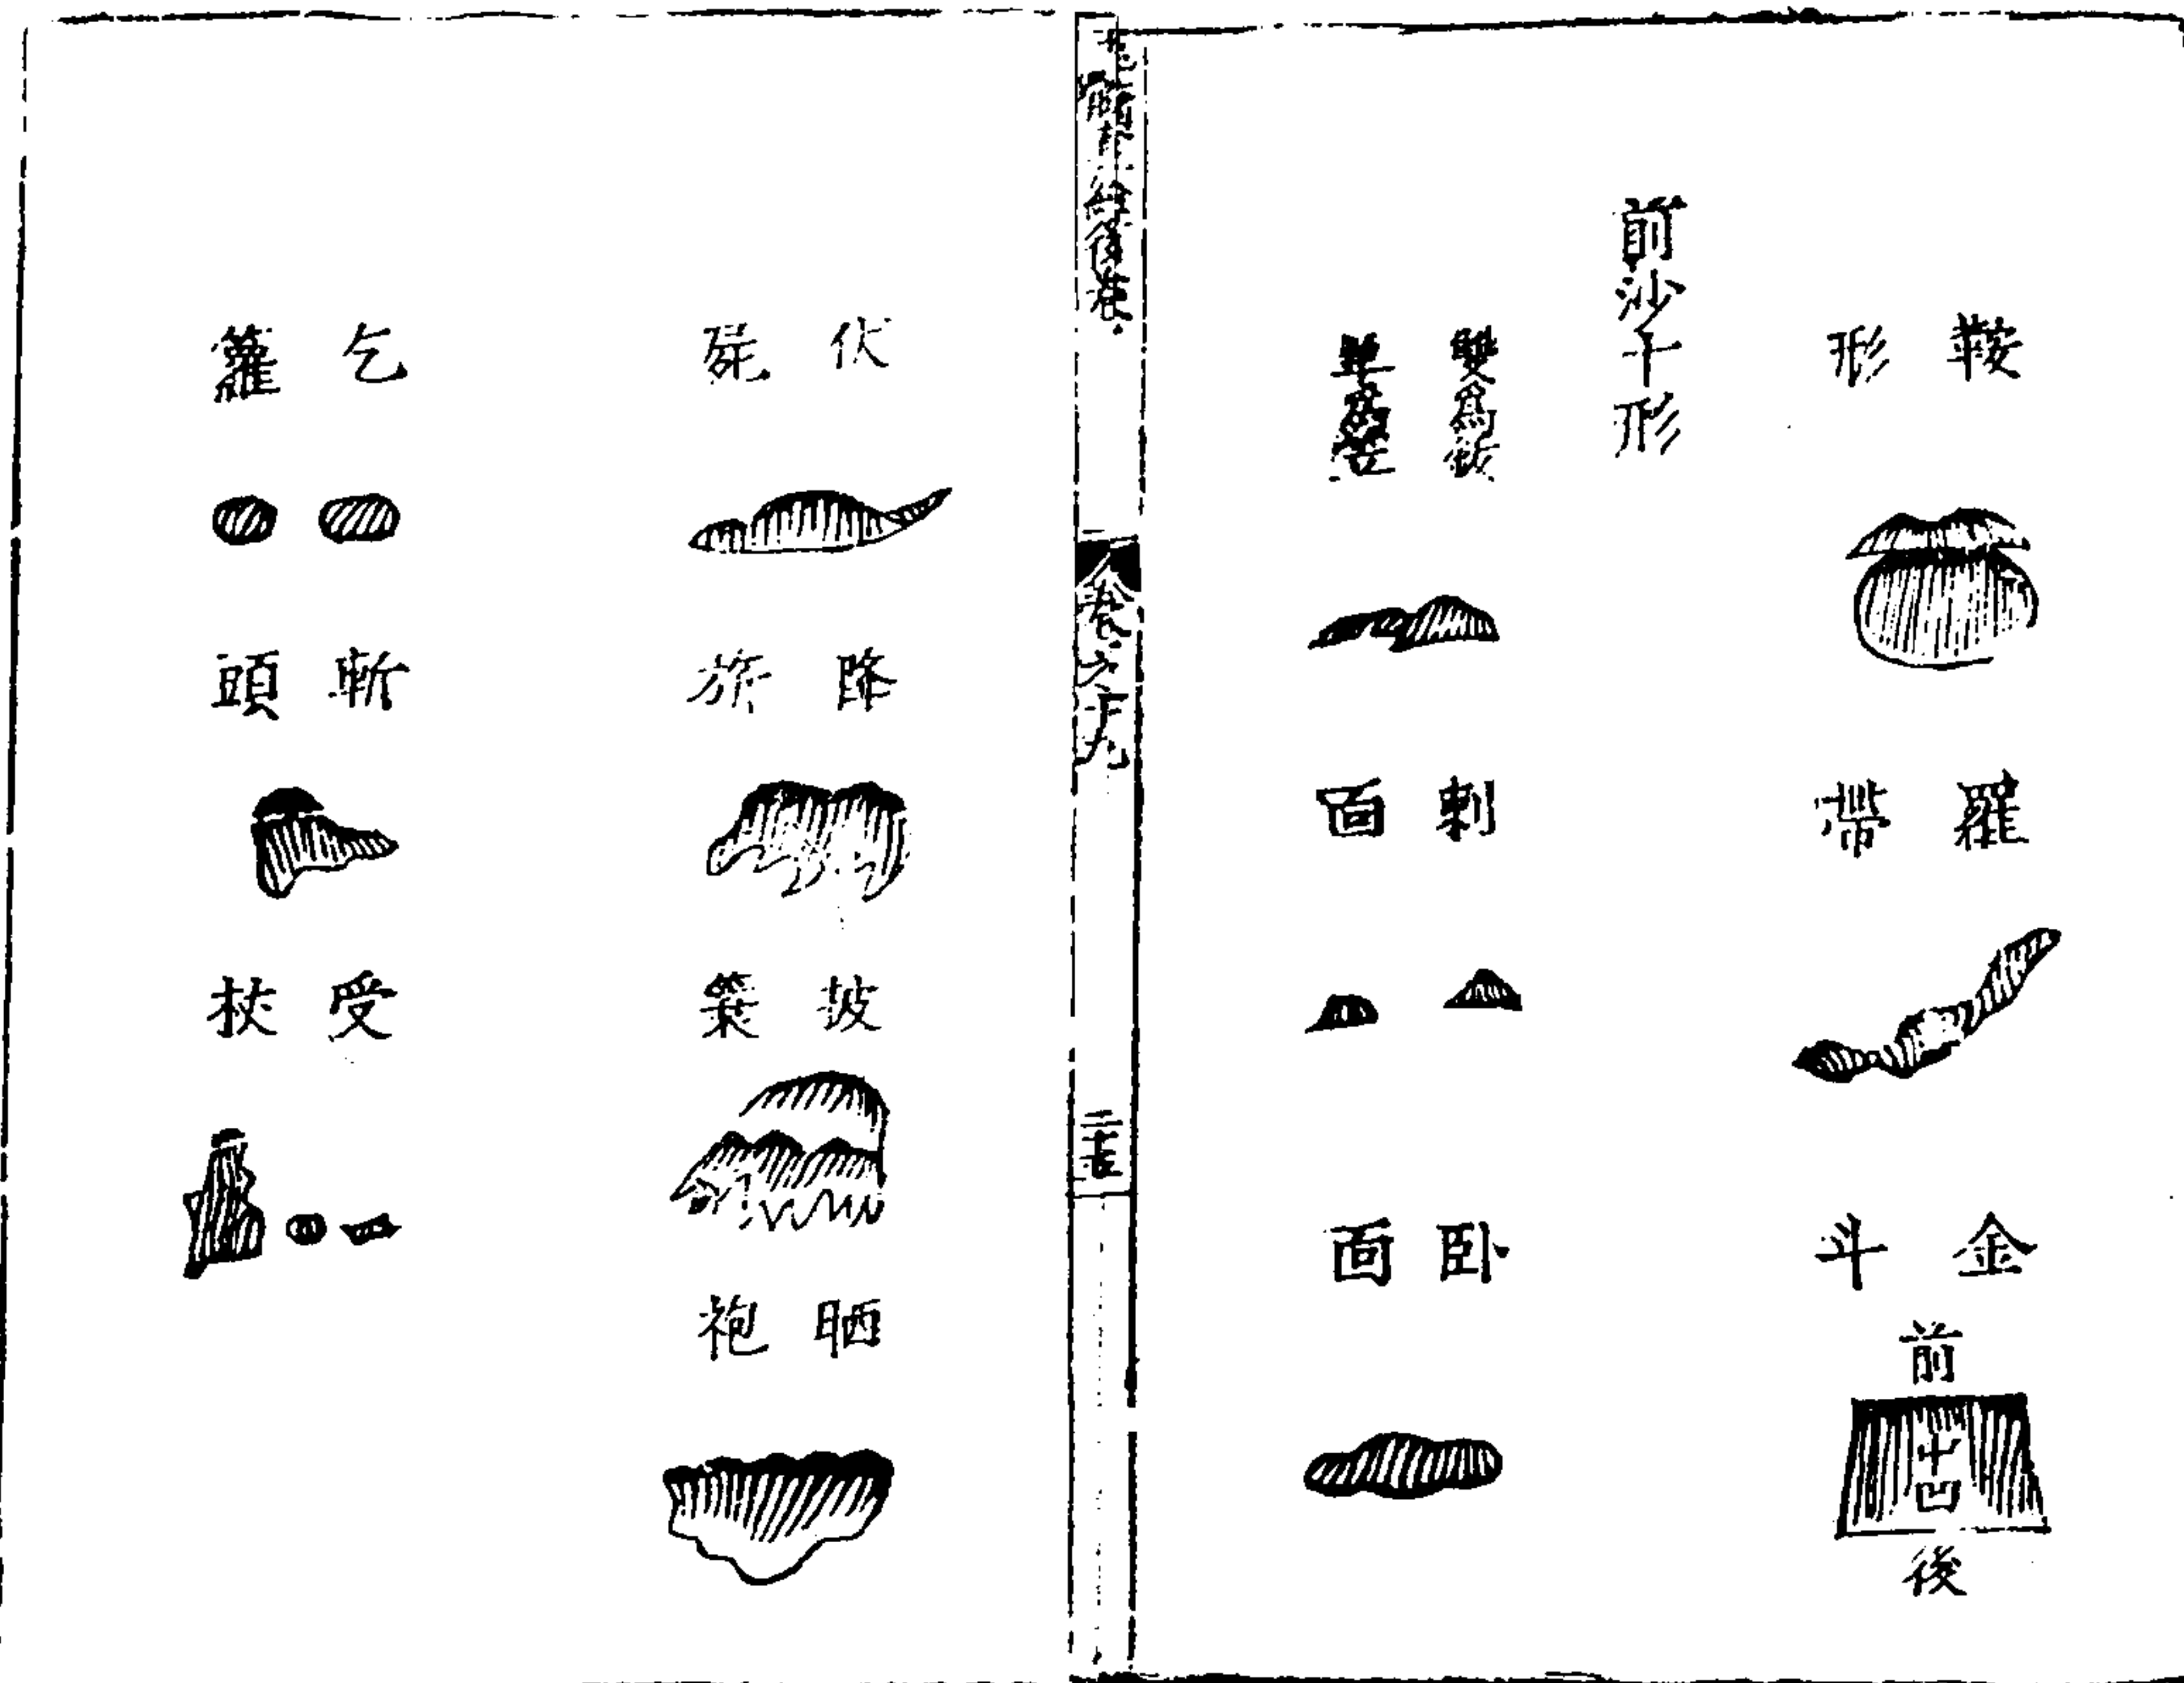 鞍形
羅帶
金斗
前
十凹
後
前沙十形
雙爲釵
單爲
刺面
卧面
卷之十九
伏屍
降旂
披簑
晒袍
乞籮
斬頭
受杖